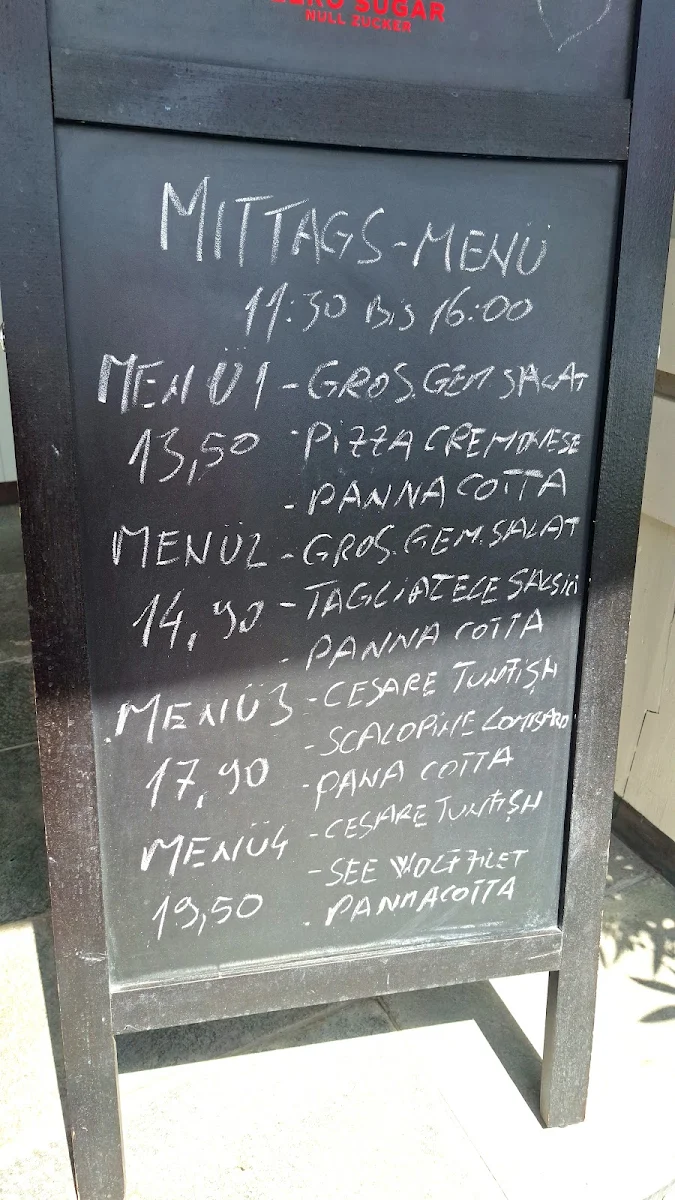 ZERO SUGAR
NULL ZUCKER
MITTAGS-MENÜ
11:30 BIS 16:00
MENÜ1 - GROS. GEM SALAT
13,50 - PIZZA CREMONESE
- PANNA COTTA
MENÜ2 - GROS. GEM. SALAT
14,90 - TAGLIATELE SALSICI
- PANNA COTTA
MENÜ3 - CESARE TUNFISH
- SCALOPINE LOMBARD
17,90 - PANA COTTA
MENÜ4 - CESARE TUNFISH
- SEE WOLFFILET
19,50 . PANNACOTTA